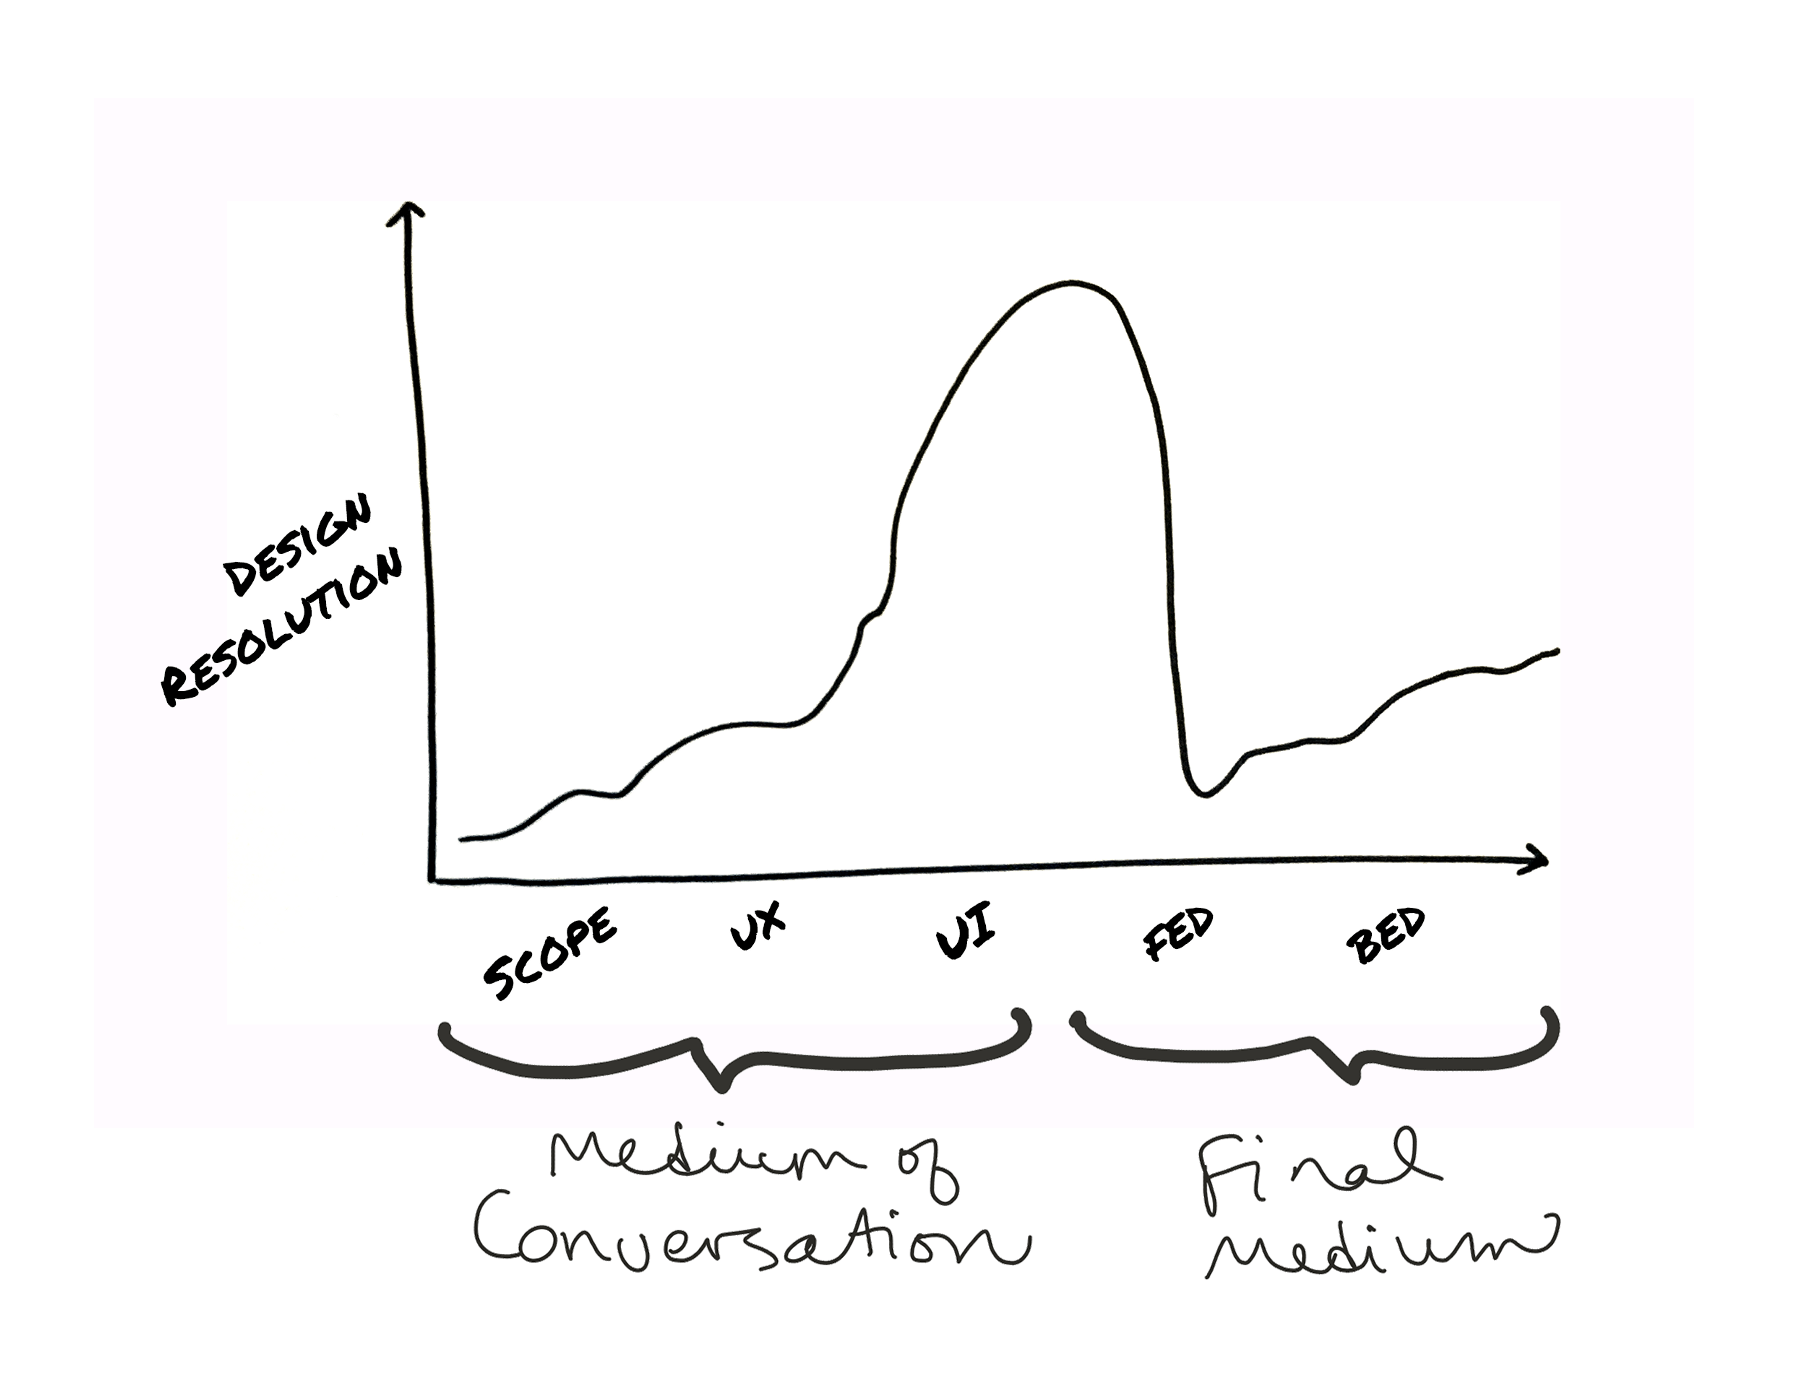 DESIGN
RESOLUTION
SCOPE
UX
UI
FED
BED
Medium of
Conversation
Final
Medium